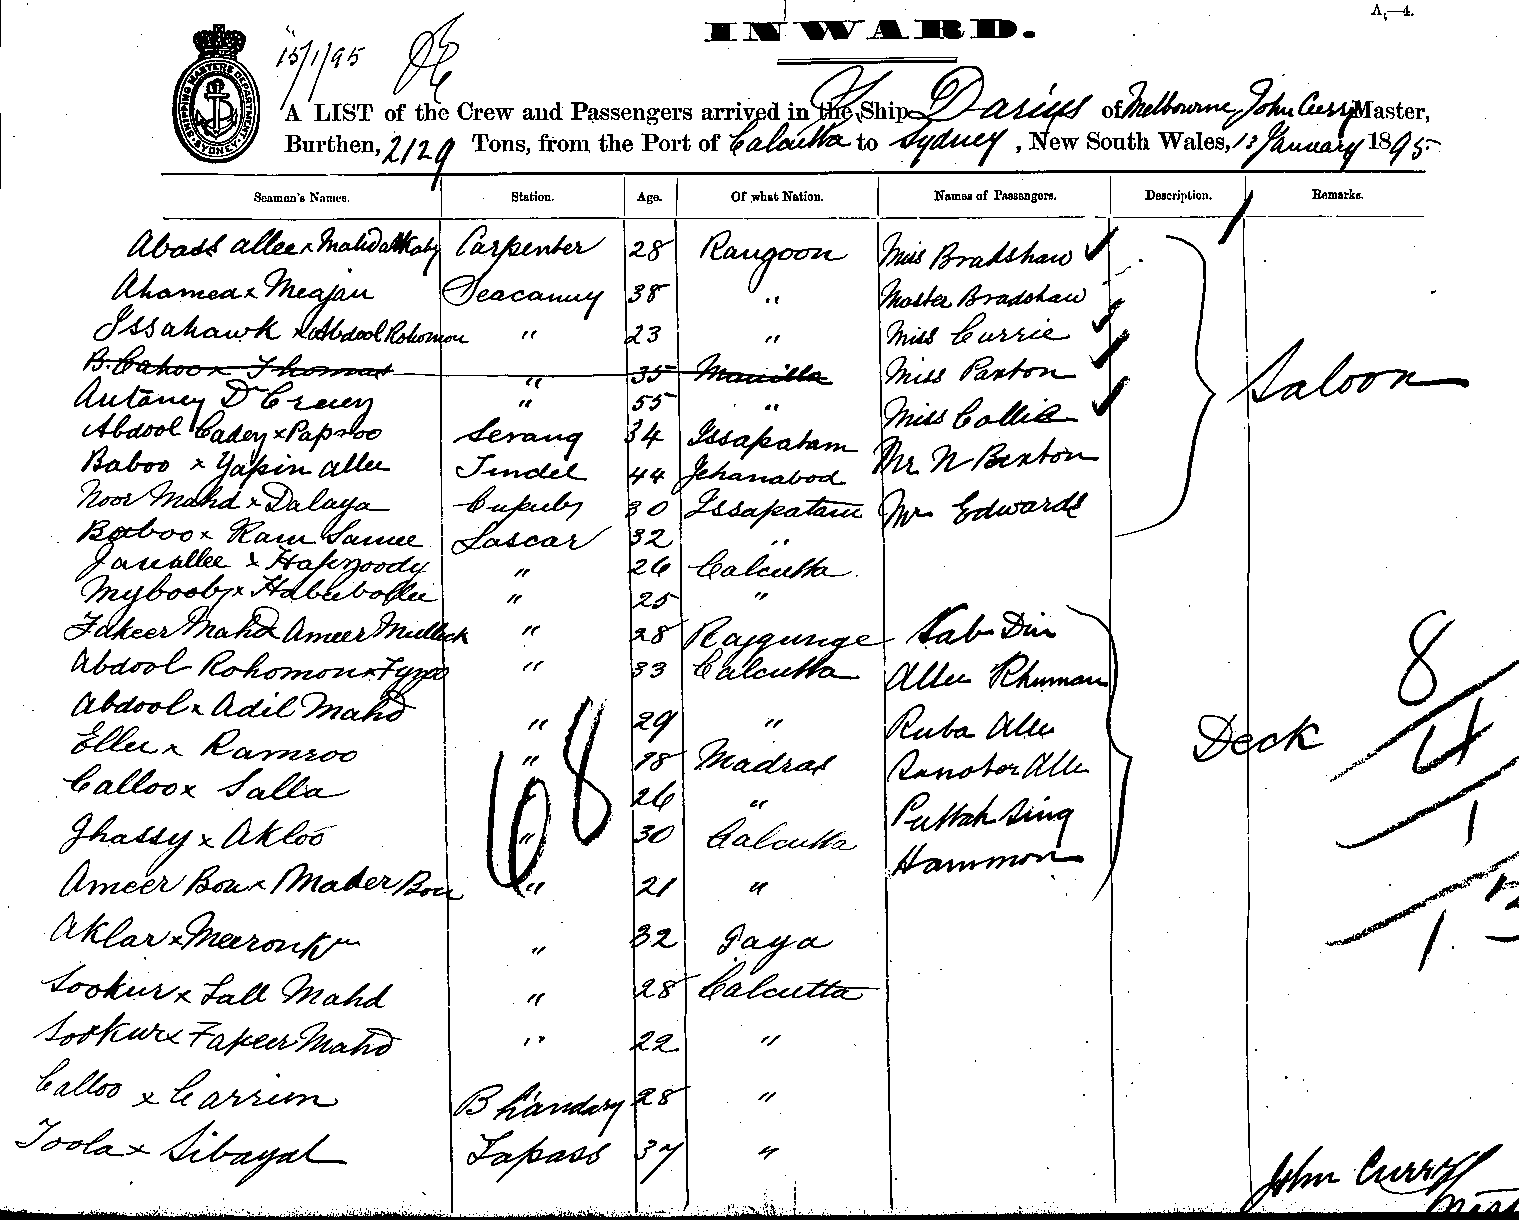 A,—4.
INWARD.
15/1/95
SHIPPING MASTERS DEPARTMENT SYDNEY
A LIST of the Crew and Passengers arrived in the Ship Darius of Melbourne, John Currie Master,
Burthen, 2129 Tons, from the Port of Calcutta to Sydney, New South Wales, 13 January 1895
Seaman's Names. Station. Age. Of what Nation. Names of Passengers. Description. Remarks.
Abass allee x Carpenter 28 Rangoon Miss Bradshaw
Ahamed x Meajan Seacunny 38 " Master Bradshaw
Issahawk x Abdool Rohomon " 23 " Miss Currie
B. Cahoo x Thomas " 35 Manilla Miss Paxton
Antaney D Cruey " 55 " Miss Collie
Saloon
Abdool Cadey x Papsoo Serang 34 Issapatam
Baboo x Yapin allee Tindel 44 Jehanabod Mr N Benton
Noor Mahd x Dalaya 30 Issapatam Mr Edwards
Baboo x Ram Samee Lascar 32 "
Janallee x Hapzoody " 26 Calcutta
Mybooby x Habeebollee " 25 "
Fakeer Mahd x Ameer Mulleck " 28 Rajgunge Sab Din
Abdool Rohomon x " 33 Calcutta Allee Rhuman
Abdool x Adil Mahd " 29 " Ruba Allee
Deck
8
4
1
1
Ellee x Ramroo " 18 Madras Sanotor Alle
Calloo x Salla " 26 " Puttah Sing
68
Jhassy x Akloo " 30 Calcutta Hammon
Ameer Bou x Mader Bou " 21 "
Aklar x " 32 Gaya
Sookur x Lall Mahd " 28 Calcutta
Sookur x Fakeer Mahd " 22 "
Calloo x Carrim Bhandary 28 "
Toola x Sibayal Topass 37 "
John Currie